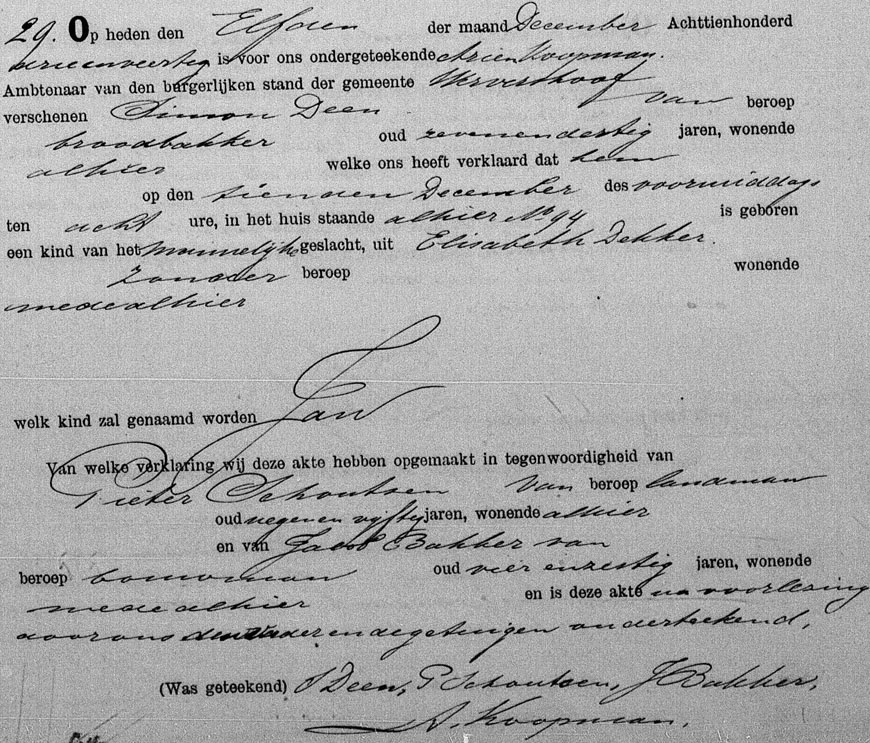 29. Op heden den Elfden der maand December Achttienhonderd
drieenveertig is voor ons ondergeteekende Arien Koopman.
Ambtenaar van den burgerlijken stand der gemeente Wervershoof
verschenen Simon Deen van beroep
broodbakker oud zevenendertig jaren, wonende
alhier welke ons heeft verklaard dat hem
op den tienden December des voormiddags
ten acht ure, in het huis staande alhier No 94 is geboren
een kind van het mannelijke geslacht, uit Elisabeth Dekker.
zonder beroep wonende
mede alhier
welk kind zal genaamd worden Jan
Van welke verklaring wij deze akte hebben opgemaakt in tegenwoordigheid van
Pieter Schoutsen van beroep landman
oud negen en vijftig jaren, wonende alhier
en van Jacob Bakker van
beroep bouwman oud vier en zestig jaren, wonende
mede alhier en is deze akte na voorlezing
door ons den vader en de getuigen onderteekend,
(Was geteekend) S Deen, P Schoutsen, J Bakker,
A. Koopman.